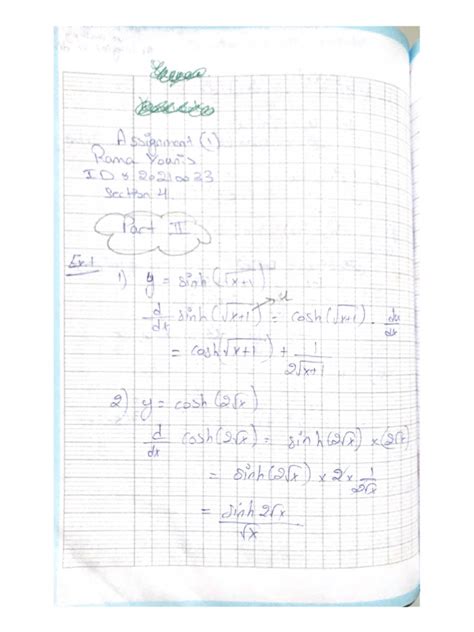 Assignment (1)
Rana Younis
ID: 20210033
Section 4
Part II
Ex.1
1) y = sinh(√x+1)
d/dx sinh(√x+1) → u = cosh(√x+1) . du/dx
= cosh(√x+1) + 1/2√x+1
2) y = cosh(2√x)
d/dx cosh(2√x) = sinh(2√x) × (2√x)
= sinh(2√x) × 2 × 1/2√x
= sinh 2√x/√x